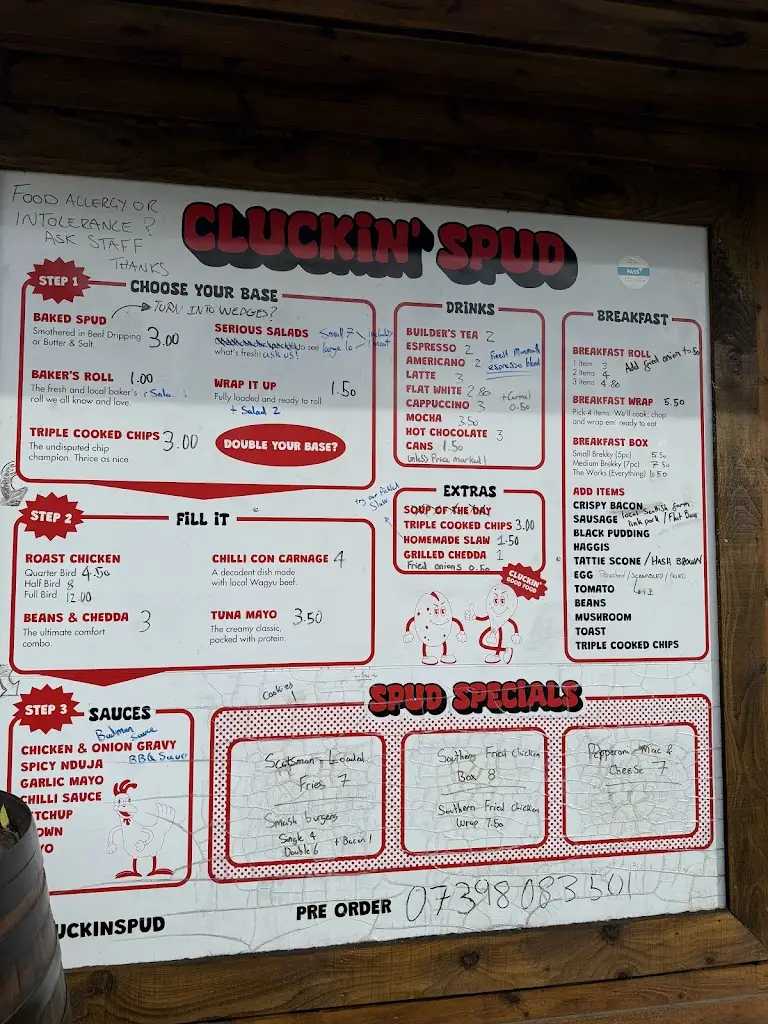 FOOD ALLERGY OR
INTOLERANCE?
ASK STAFF
THANKS
CLUCKIN' SPUD
PASS
STEP 1
CHOOSE YOUR BASE
BAKED SPUD → TURN INTO WEDGES?
Smothered in Beef Dripping
or Butter & Salt.
3.00
BAKER'S ROLL 1.00
The fresh and local baker's
roll we all know and love.
TRIPLE COOKED CHIPS 3.00
The undisputed chip
champion. Thrice as nice.
SERIOUS SALADS
Small 7
large 10
to see
what's fresh! ask us!
WRAP IT UP
1.50
Fully loaded and ready to roll
+ Salad 2
DOUBLE YOUR BASE?
STEP 2
FILL IT
ROAST CHICKEN
Quarter Bird 4.50
Half Bird 8
Full Bird 12.00
BEANS & CHEDDA 3
The ultimate comfort
combo.
CHILLI CON CARNAGE 4
A decadent dish made
with local Wagyu beef.
TUNA MAYO 3.50
The creamy classic,
packed with protein.
STEP 3
SAUCES
CHICKEN & ONION GRAVY
SPICY NDUJA
BBQ Sauce
GARLIC MAYO
CHILLI SAUCE
TCHUP
OWN
YO
DRINKS
BUILDER'S TEA 2
ESPRESSO 2
AMERICANO 2
espresso blend
LATTE 3
FLAT WHITE 2.80
CAPPUCCINO 3
+Caramel
0.50
MOCHA 3.50
HOT CHOCOLATE 3
CANS 1.50
unless Price marked!
EXTRAS
try our pickled
Slaw
SOUP OF THE DAY
TRIPLE COOKED CHIPS 3.00
HOMEMADE SLAW 1.50
GRILLED CHEDDA 1
Fried onions 0.50
CLUCKIN'
GOOD FOOD
BREAKFAST
BREAKFAST ROLL
1 Item 3
2 Items 4
3 Items 4.80
BREAKFAST WRAP 5.50
Pick 4 items. We'll cook, chop
and wrap em' ready to eat
BREAKFAST BOX
Small Brekky (5pc) 5.50
Medium Brekky (7pc) 7.50
The Works (Everything) 10.50
ADD ITEMS
CRISPY BACON
SAUSAGE local Scottish farm
link pork / Flat
BLACK PUDDING
HAGGIS
TATTIE SCONE / HASH BROWN
EGG Poached / SCRAMBLED / FRIED
TOMATO
BEANS
MUSHROOM
TOAST
TRIPLE COOKED CHIPS
Cookies
SPUD SPECIALS
Scotsman Loaded
Fries 7
Smash burgers
Single 4
Double 6 + Bacon 1
Southern Fried Chicken
Box 8
Southern Fried Chicken
Wrap 7.50
Pepperoni Mac &
Cheese 7
UCKINSPUD
PRE ORDER 07398083501